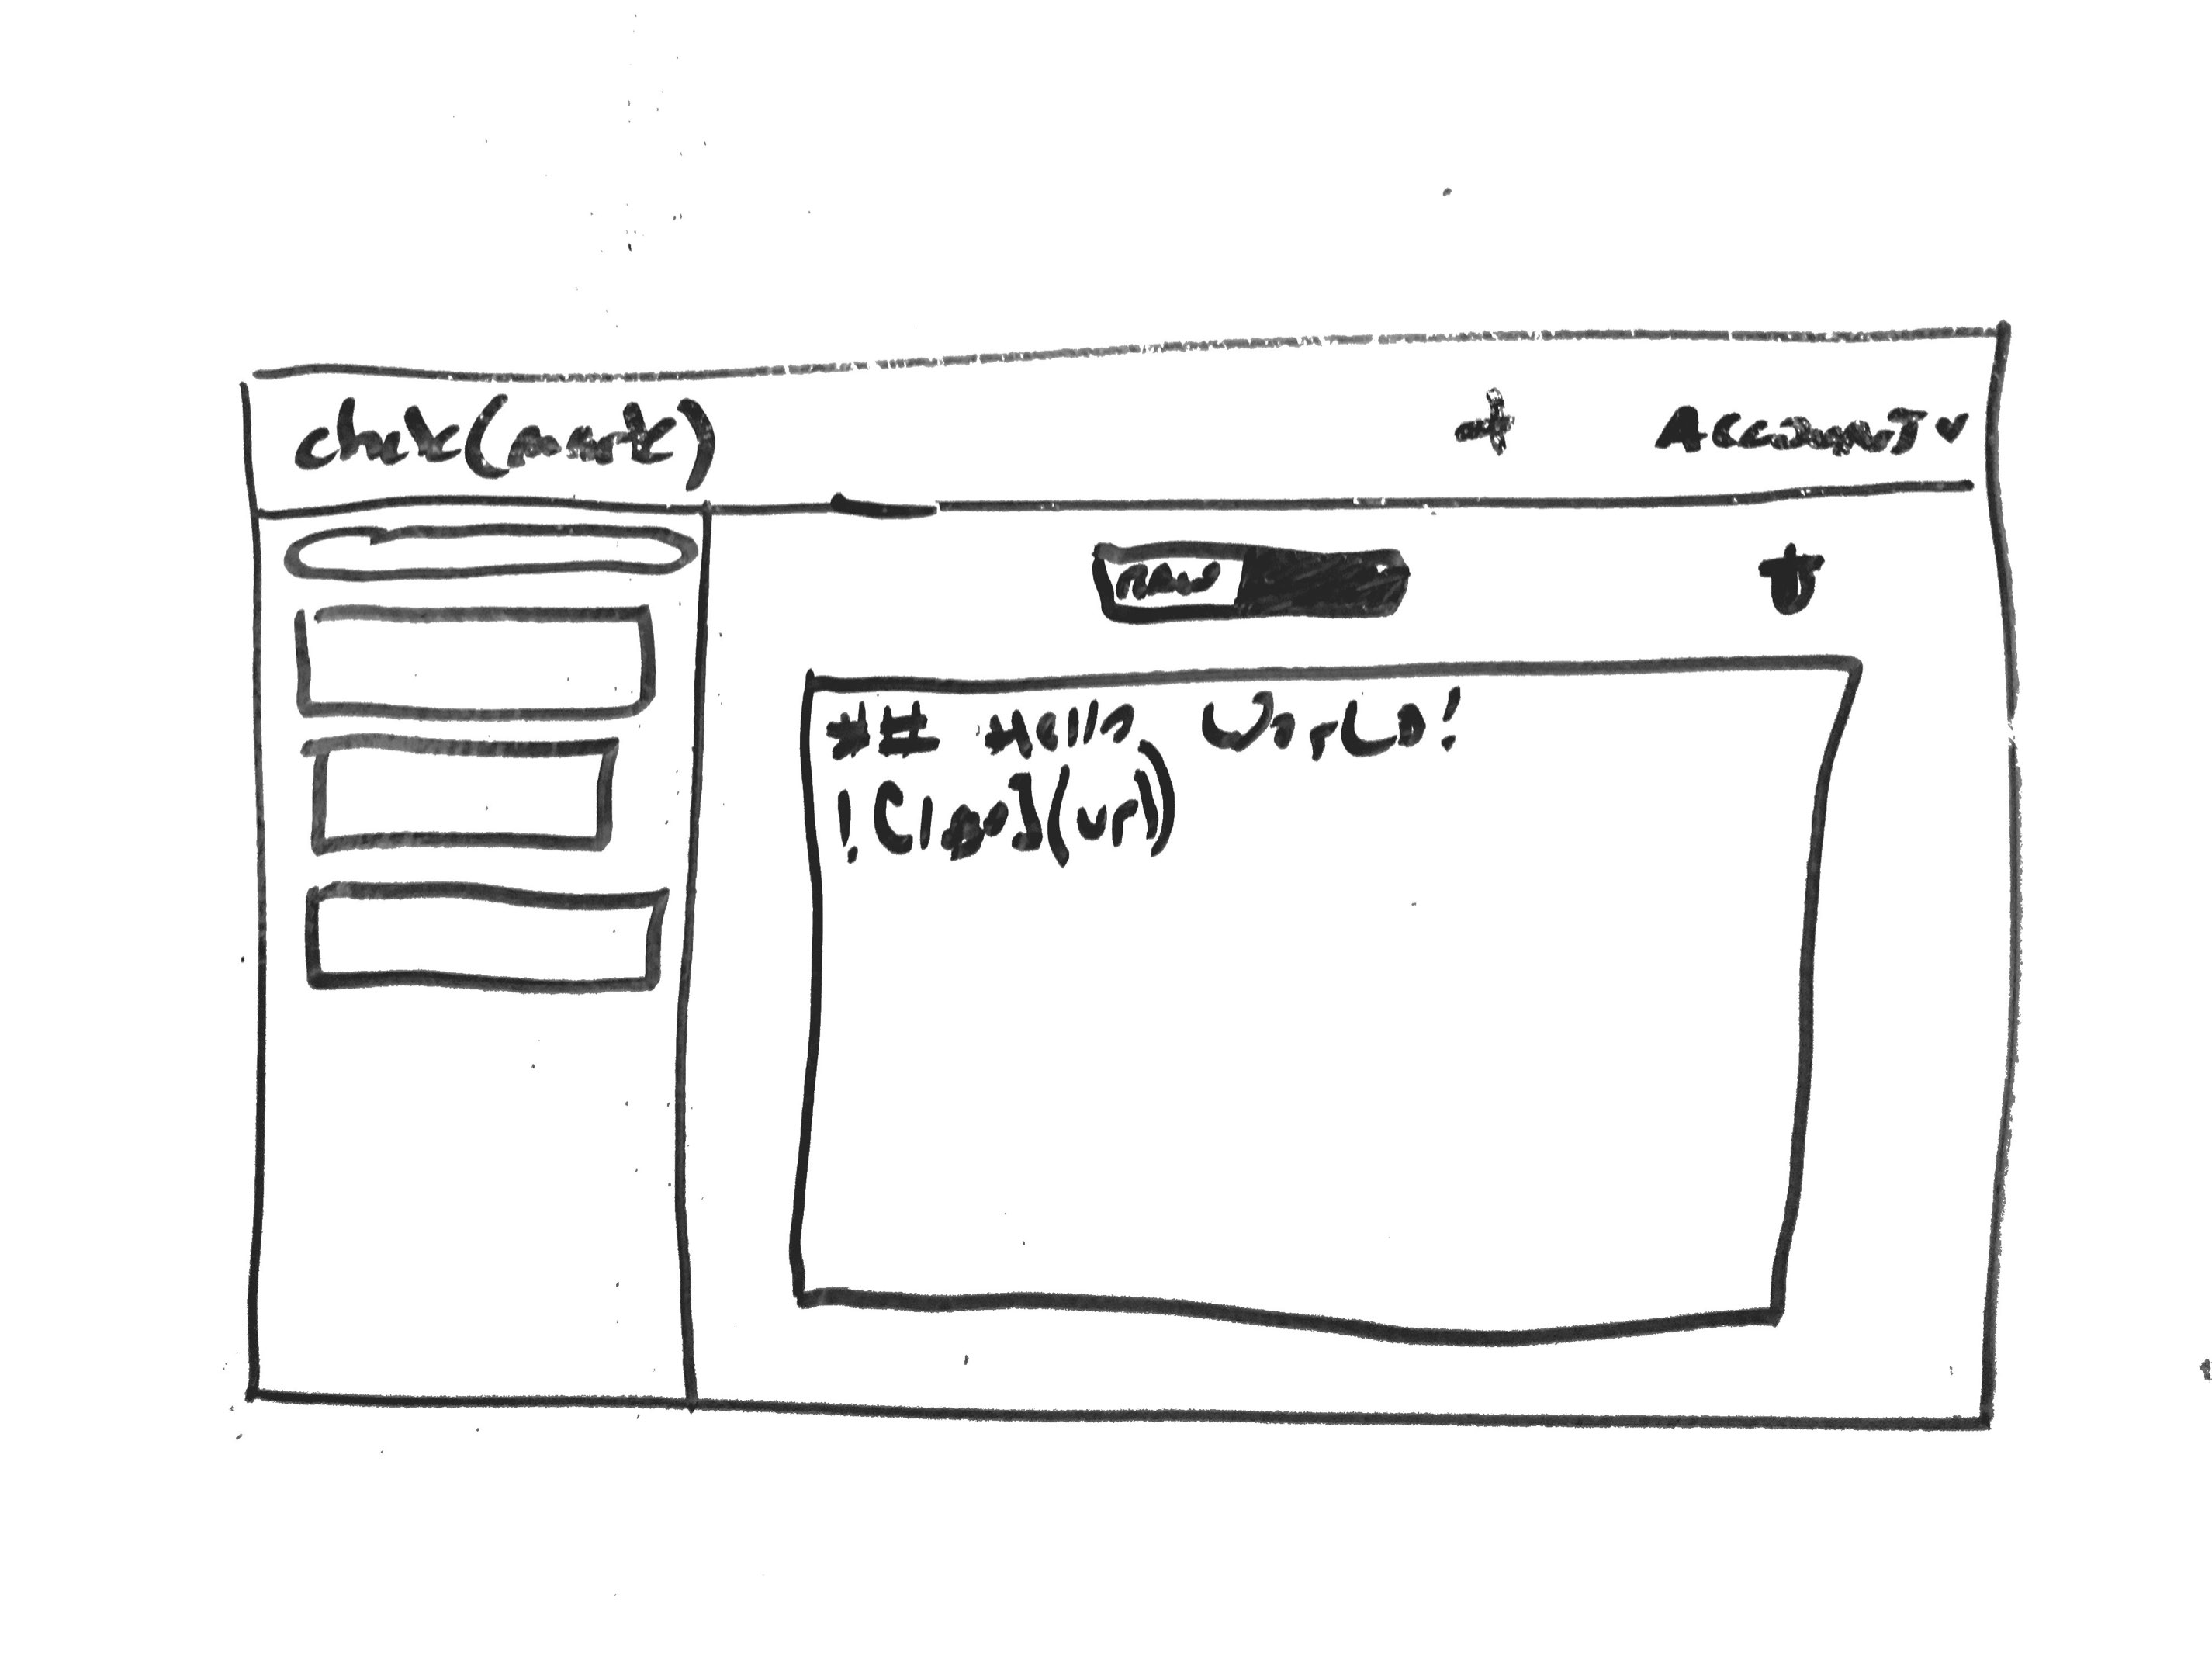 check(mark) + Account ˅
raw
## Hello, World!
![logo](url)